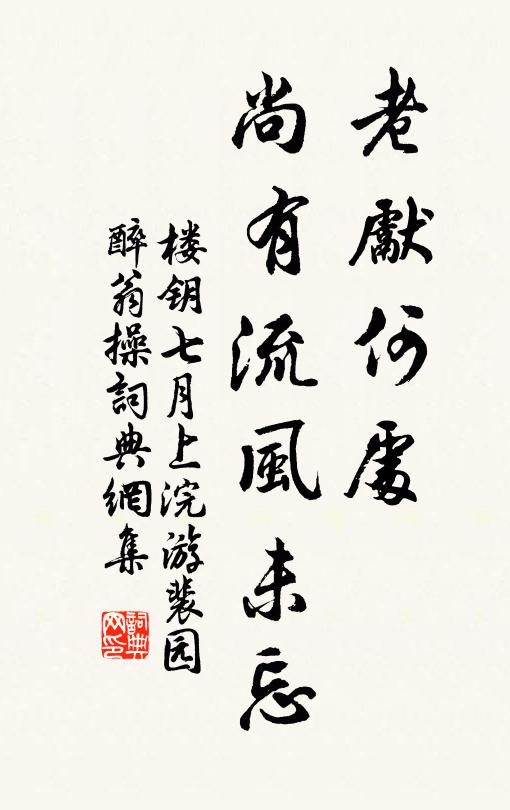 老獻何處
尚有流風未忘
楼钥七月上浣游裴园
醉翁操詞典網集
詞典网印